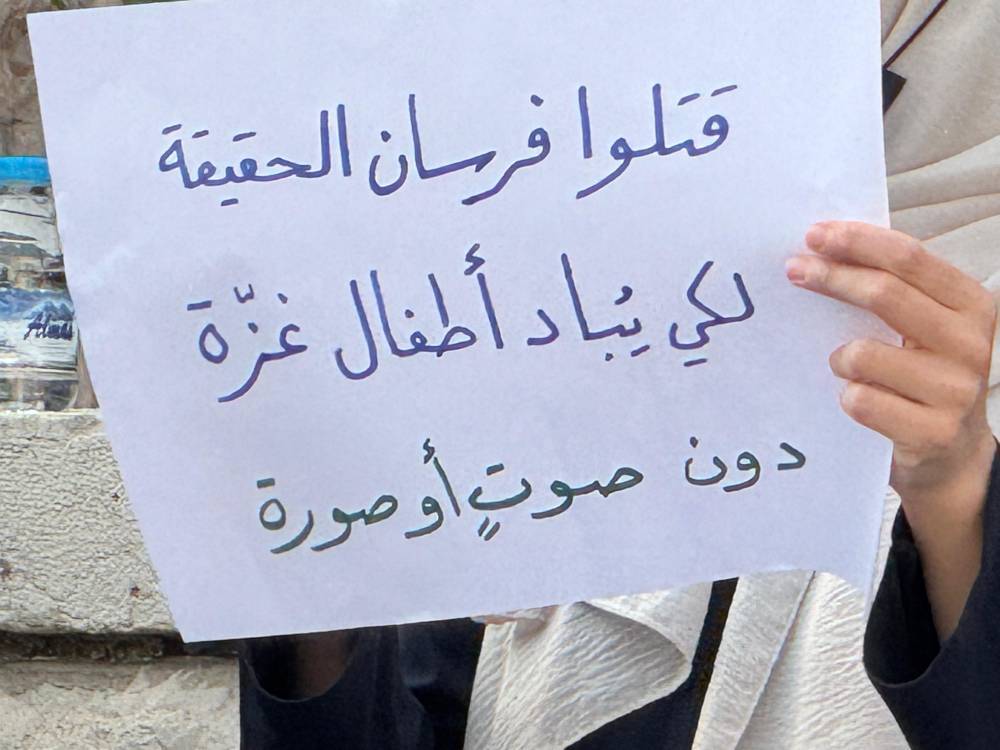 قتلوا فرسان الحقيقة
لكي يُباد أطفال غزّة
دون صوتٍ أو صورة